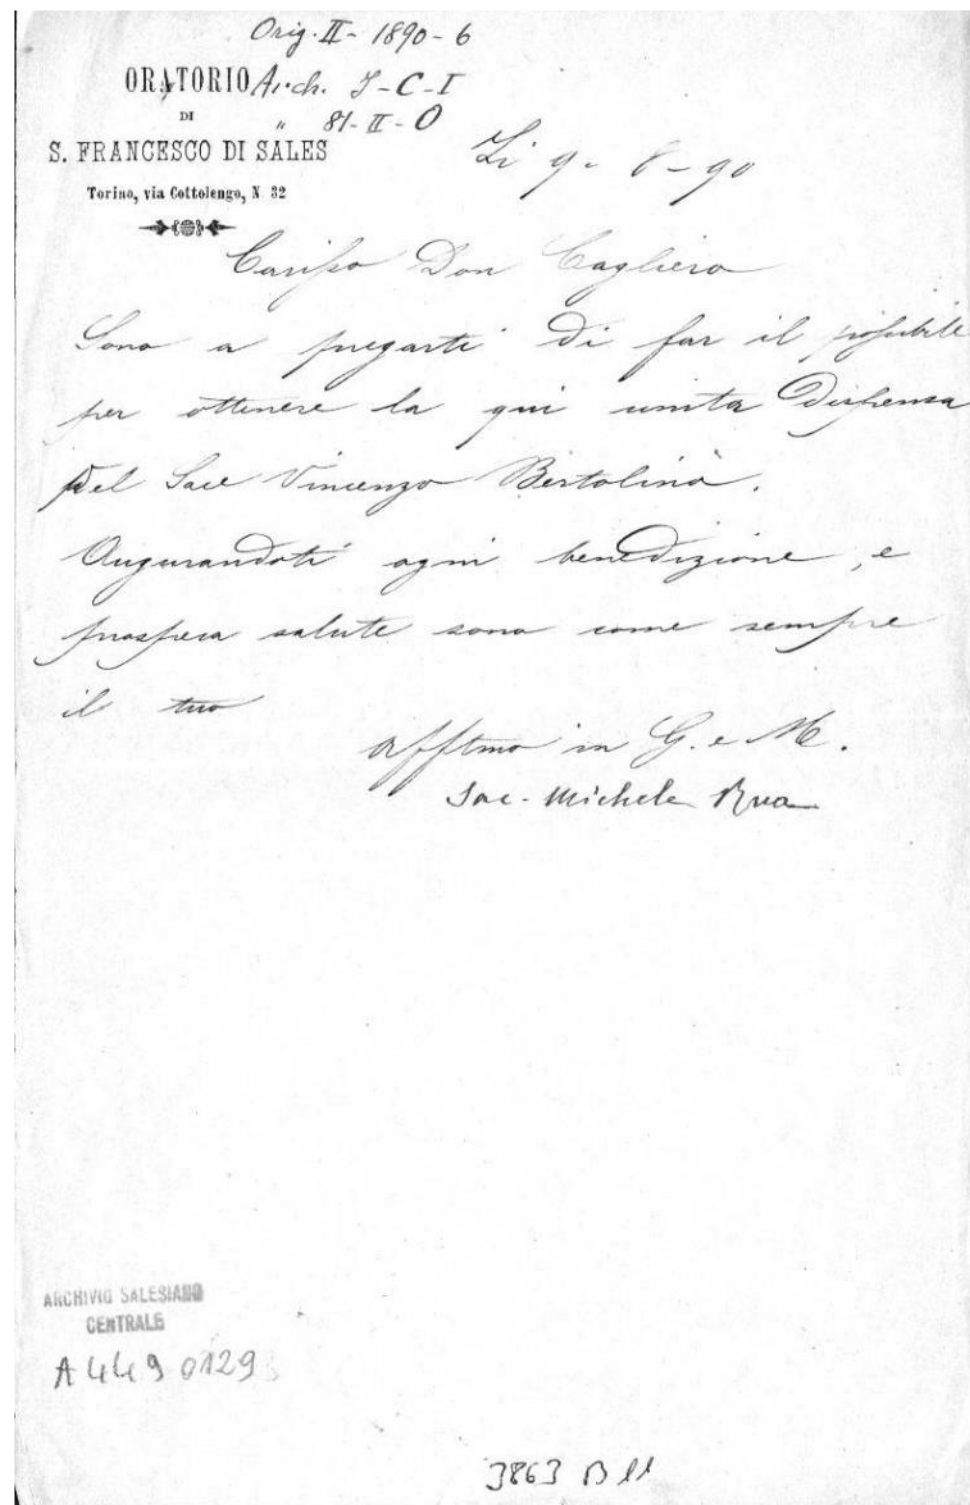 Orig. II - 1890 - 6
ORATORIO Arch. J - C - I
DI
" 81 - II - O
S. FRANCESCO DI SALES
Torino, via Cottolengo, N. 32
Li 9 - 8 - 90
Carisso Don Cagliero
Sono a pregarti di far il possibile
per ottenere la qui unita Dispensa
del Sace Vincenzo Bertolino.
Augurandoti ogni benedizione, e
prospera salute sono come sempre
il tuo
affttmo in G. e M.
Sac. Michele Rua
ARCHIVIO SALESIANO
CENTRALE
A4490129
3863 B 11